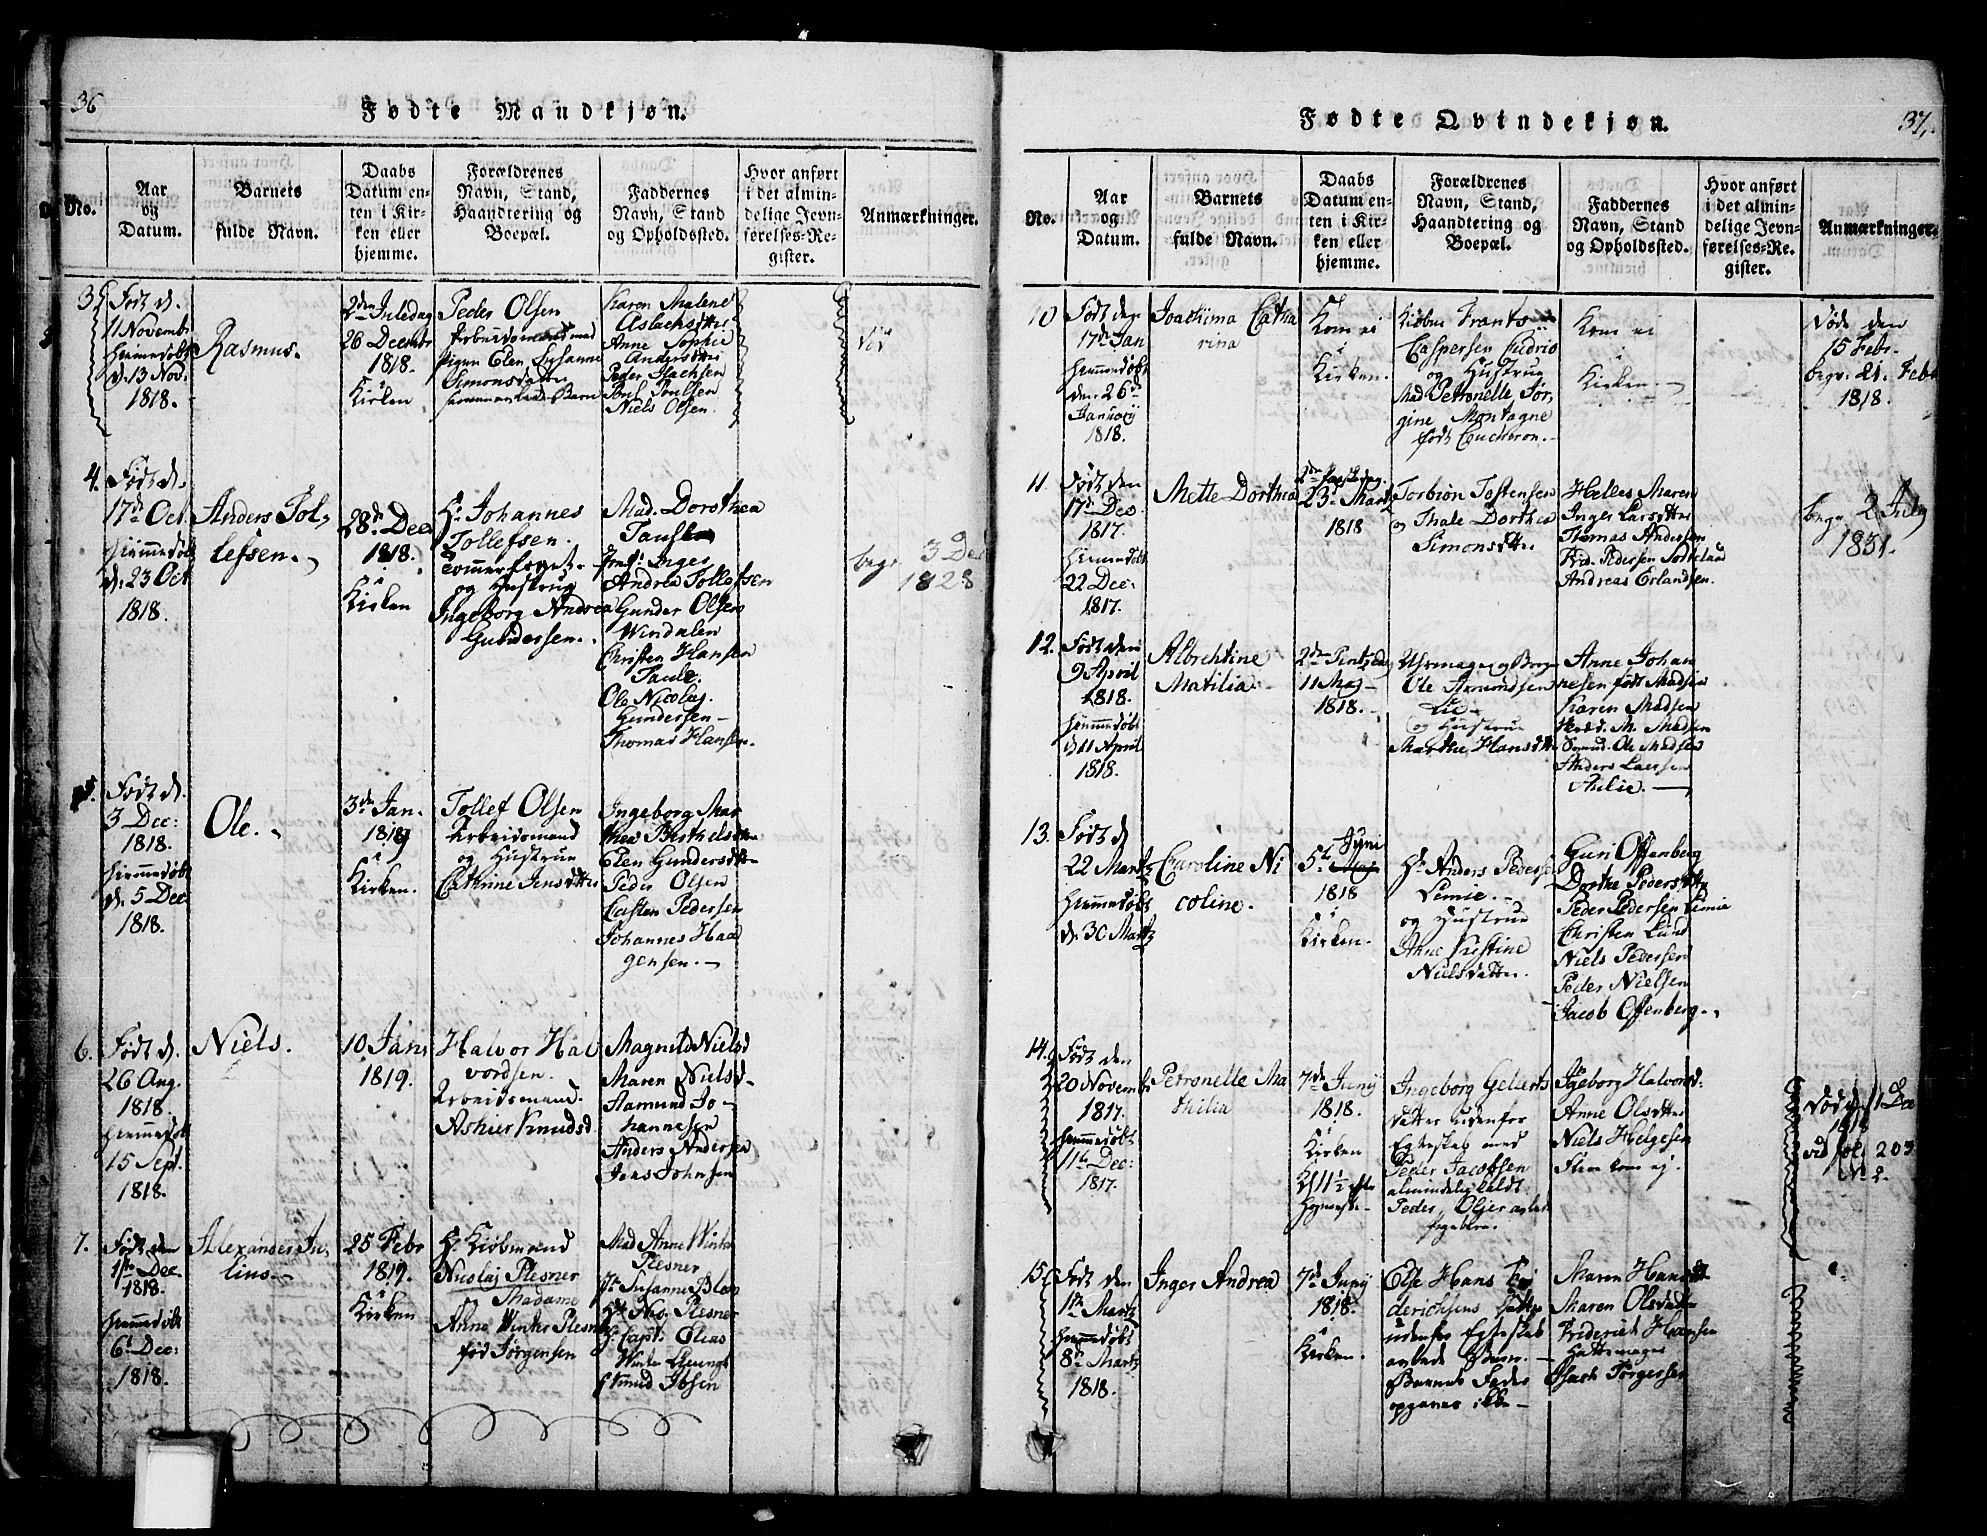 36
Fødte Mandkjøn.
No.
Aar
og
Datum.
Barnets
fulde Navn.
Daabs
Datum en-
ten i Kir-
ken eller
hjemme.
Forældrenes
Navn, Stand,
Haandtering og
Boepæl.
Faddernes
Navn, Stand
og Opholdssted.
Hvor anført
i det almin-
delige Jevn-
førelses-Re-
gister.
Anmærkninger.
3.
Født d.
11 Novemb.
hiemmedøbt
d. 13 Nov.
1818.
Rasmus.
2den Juledag
26 Decembr
1818.
i
Kirken
Peder Olsen
Arbeidsmand med
pigen Elen Susanne
Simonsdatter
Karen Malene
Aslachsdtter
Anne Sophie
Andersdtter
Peder
Poulsen
Niels Olsen.
4.
Født d.
17de Oct.
hiemmedøbt
d. 23 Oct
1818.
Anders Tol-
lefsen.
28de Dec
1818.
i
Kirken
Hr Johannes
Tollefsen.
og Hustrue
Ingeborg Andrea
Gundersen.
Mad. Dorothea
Inger
Andrea Tollefsen
Gunder Olsen
Windalen
Christen Hansen
Ole Nicolay
Gundersen
Thomas Hansen.
begr. 3 Dec
1828
5.
Født d.
3 Dec:
1818.
hiemmedøbt
d. 5 Dec
1818.
Ole.
3de Jan.
1819
i
Kirken.
Tollef Olsen
Arbeidsmand
og Hustrue
Cathrine Jensdtter
Ingeborg Mar
thea Bertelsdtter
Elen Gundersdtter
Peder Olsen
Casten Pedersen
Johannes Haa
gensen.
6.
Født d.
26 Aug.
1818.
hiemmedøbt
15 Sept.
1818.
Niels.
10 Jan
1819.
Halvor Hal
vordsen.
Arbeidsmand.
Knudsd
Magnild Nielsd
Maren Nielsd.
Aamund Jo-
hannesen
Anders Andersen
Jens Johnsen
7.
Født den
1ste Dec.
1818.
hiemmedøbt
6te Dec:
1818.
Alexander Ju-
lius.
25 Febr
1819.
i
Kirken
Hr Kiøbmand
Nicolaj Plesner
Madame
Anne Winter Plesner
fød Jørgensen
Mad Anne Winter
Plesner
Susanne Blom
Plesner
Hr Capt: Elias
Winter
Knud Ibsen
Fødte Qvindekjøn.
37.
No.
Aar
og
Datum.
Barnets
fulde Navn.
Daabs
Datum en-
ten i Kir-
ken eller
hjemme.
Forældrenes
Navn, Stand,
Haandtering og
Boepæl.
Faddernes
Navn, Stand
og Opholdssted.
Hvor anført
i det almin-
delige Jevn-
førelses-Re-
gister.
Anmærkninger.
10
Født den
17de Jan
hiemmedøbt
den 26de
Januarij
1818.
Joachima Catha
rina
Kom ei
i
Kirken.
Kiøbm. Frants
Caspersen
og Hustrue
Mad Petronelle Jør-
gine Montagne
født Coucheron.
Kom ei
i
Kirken.
Døde den
15 Febr.
begr. 21. Febr
1818.
11
Født den
17de Dec.
1817.
hiemmedøbt
22 Dec:
1817.
Mette Dorthea
2den Paaskedag
23de Martz
1818
Torbiøn Tostensen
og Thale Dorthea
Simonsdtter
Helles Maren
Inger Larsdtter
Thomas Andersen
Pedersen
Andreas Erlandsen.
begr. 2 July
1831.
12.
Født den
9 April
1818.
hiemmedøbt
d. 11 April
1818.
Albrehtine
Matilia
2den Pintsedag
11 Maj
1818.
Uhrmager og Borger
Ole Asmundsen
Lie
og Hustrue
Marthe Hansdtter
Anne Johan
nesen født Madsen
Karen Madsen
M. Madsen
Ole Madsen
Anders Larsen
13.
Født d
22 Martz
hiemmedøbt
d. 30 Martz
Caroline Ni
coline.
Juni
5te Maj
1818
i
Kirken.
Hr Anders Pedersen
Lemie.
og Hustrue
Anne Kistine
Nielsdatter.
Guri Offenberg
Dorthe Pedersdtter
Peder Pedersen Lemie
Christen Lund
Niels Pedersen
Peder Nielsen
Jacob Offenberg.
14.
Født den
20 Novemb.
1817.
hiemmedøbt
11te Dec:
1817.
Petronelle Ma
thilia
7de Junij
1818.
i
Kirken
Kl 11½
Ingeborg Gelerts
datter udenfor
Egteskab med
Peder Jacobsen
almindelig kaldt
Peder
Igeborg Halvorsd.
Anne Olsdtter
Niels Helgesen
Flere kom ej.
Død 11 Dec
1818
vid fol. 203
No 2.
15
Født den
1te Martz
hiemmedøbt
8de Martz
1818.
Inger Andrea
7de Junij
1818.
i
Kirken.
Else Hans
derichsens Datter
udenfor Egteskab
avlede Barn.
Barnets Fader
opgaves ikke
Maren Hansdtter
Maren Olsdatter
Friderich Hansen
Hattemager
Isach Torgersen